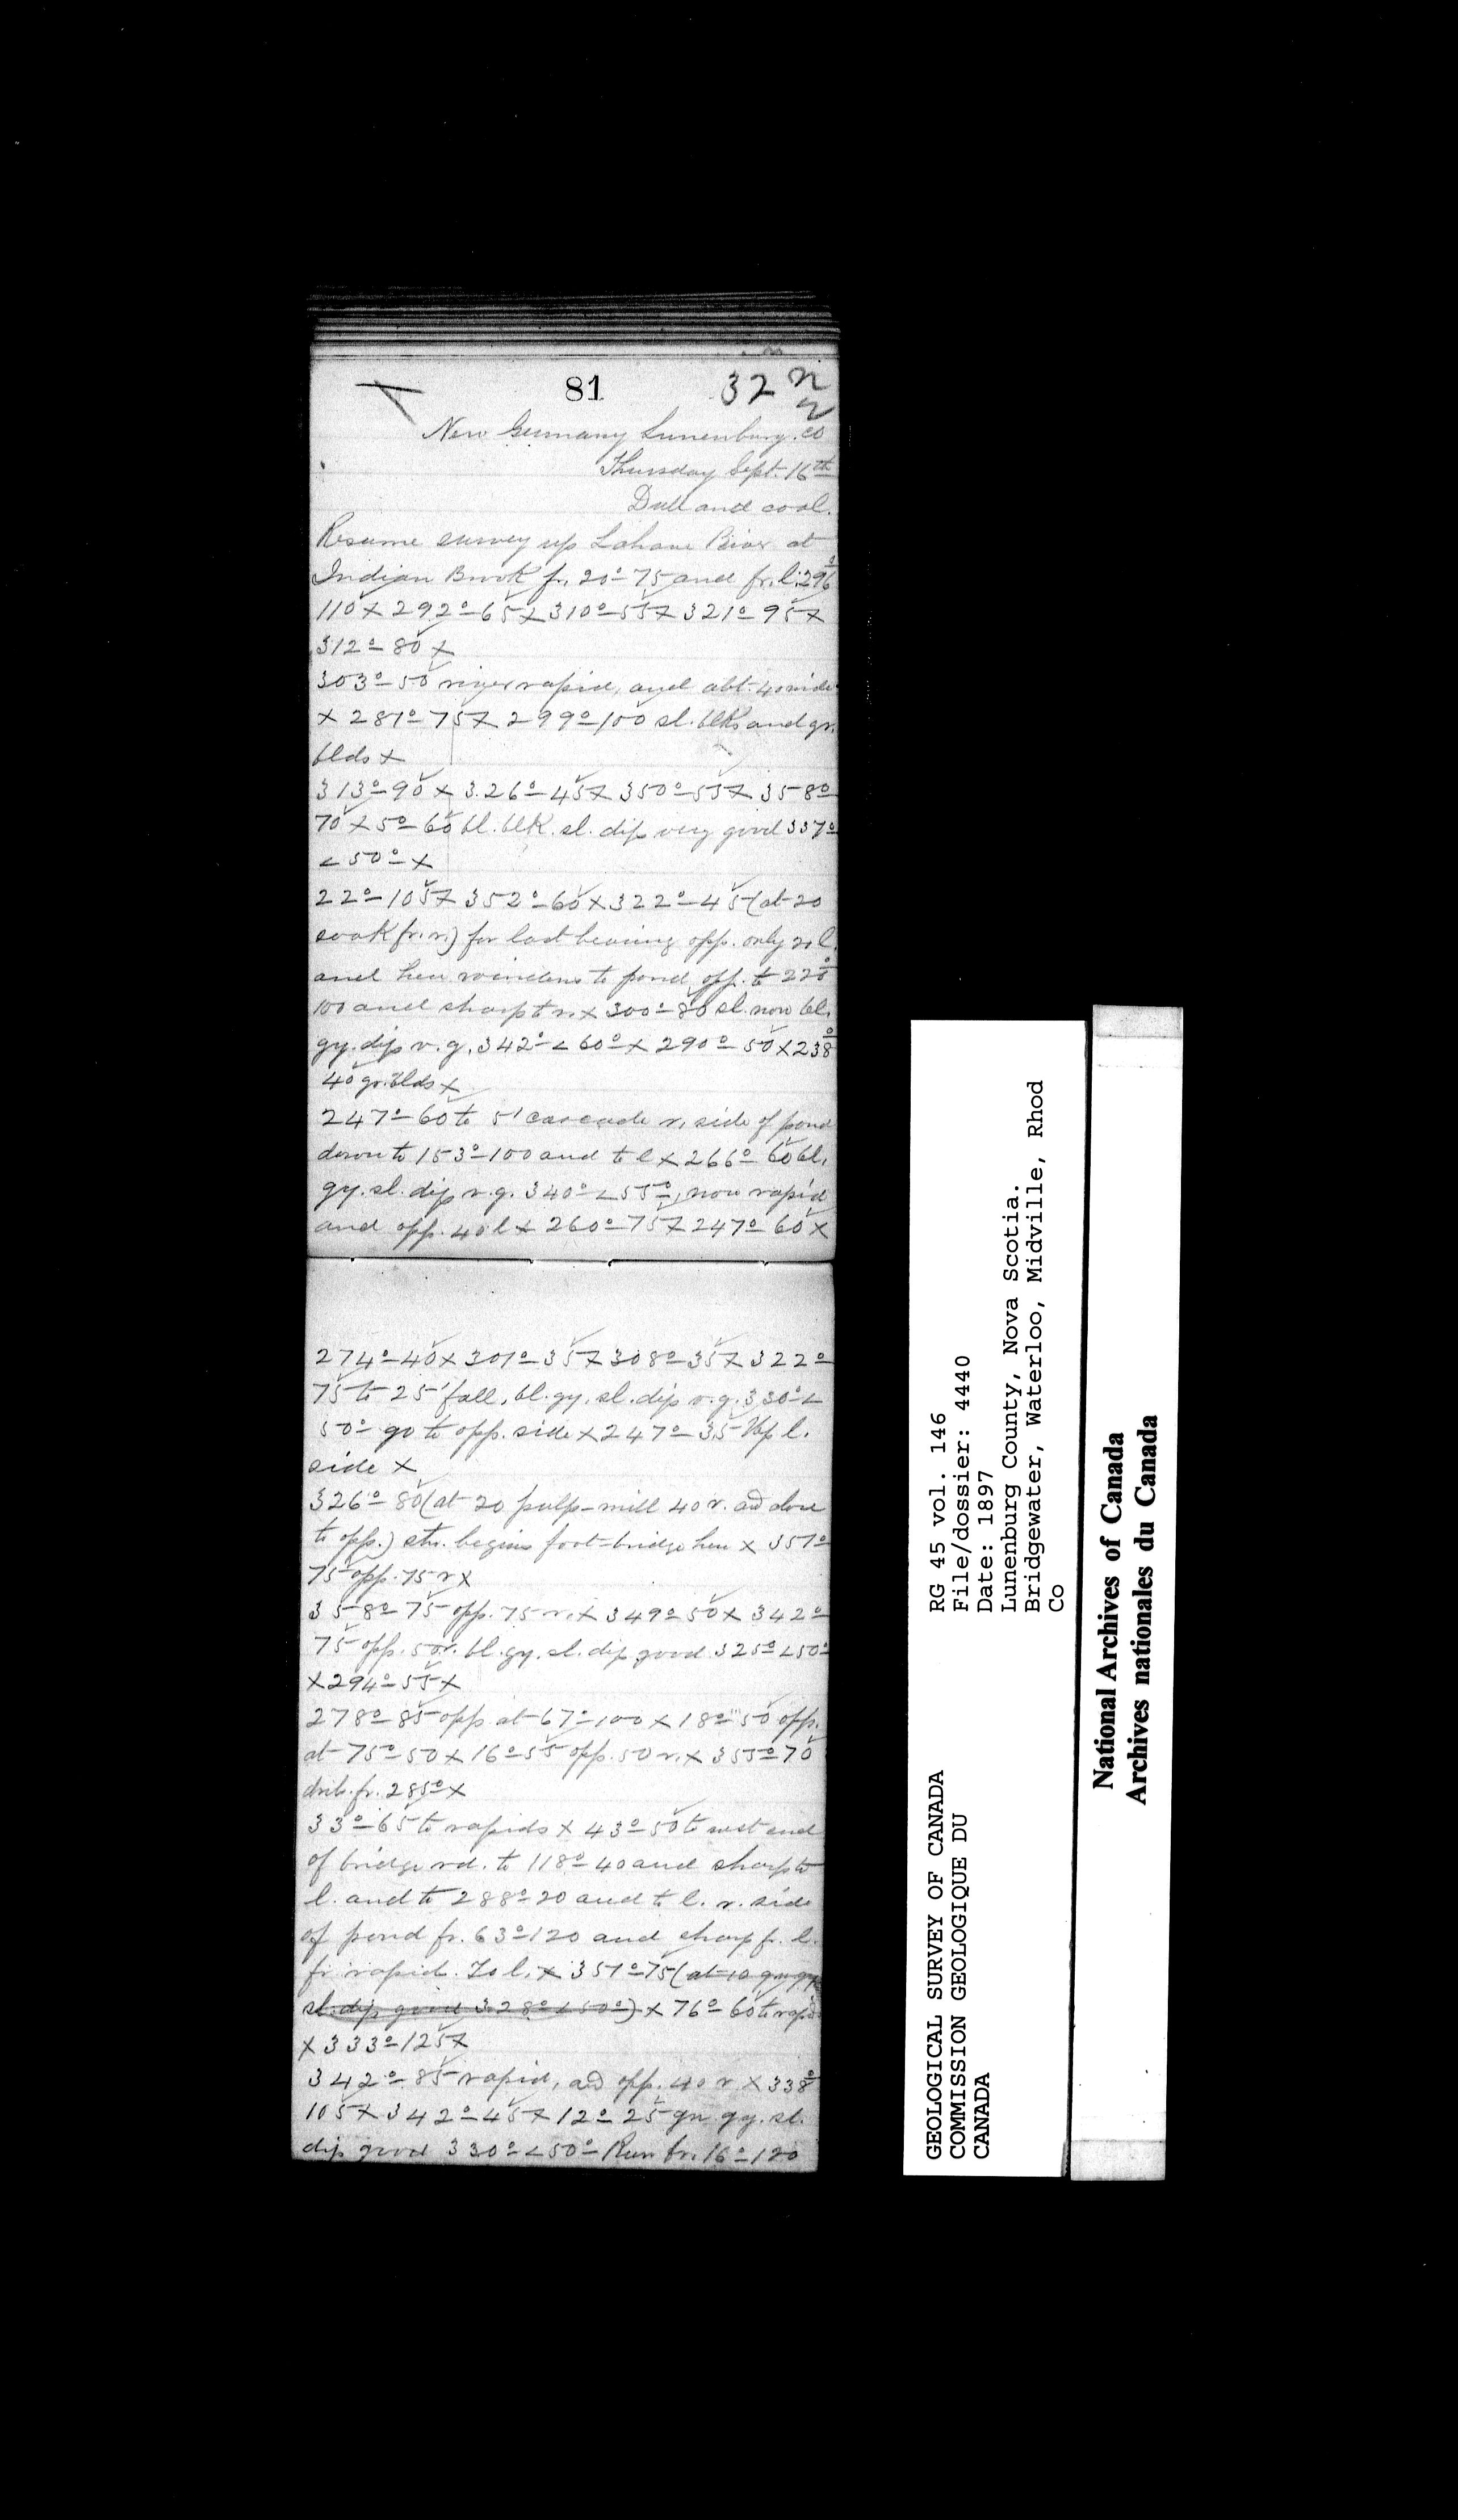 81
32
New Germany Lunenburg. Co
Thursday Sept. 16th
Dull and cool.
Resume survey up Lahave River at
Indian Brook fr. 20°-75 and fr. l. 296°
110 x 292°-65 x 310°-55 x 321°-95 x
312°-80 x
303°-50 river rapid, and abt. 40 wide
x 281°-75 x 299°-100 sl. blks and gr.
blds x
313°-90 x 326°-45 x 350°-55 x 358°
70 x 5°-60 bl. blk. sl. dip very good 337°
<50° x
22°-105 x 352°-60 x 322°-45 (at 20
soak fr. r.) for last bearing opp. only 20 l.
and here widens to pond opp. to 220°
100 and sharp to r. x 300°-80 sl. now bl.
gy. dip v. g. 342° <60° x 290°-50 x 238°
40 gr. blds x
247°-60 to 5' cascade r. side of pond
down to 153°-100 and to l x 266°-60 bl.
gy. sl. dip v. g. 340° <55°, now rapid
and opp. 40 l x 260°-75 x 247°-60 x
274°-40 x 301°-35 x 308°-35 x 322°
75 to 25' fall, bl. gy. sl. dip v. g. 330° <
50° go to opp. side x 247°-35 Up l.
side x
326°-80 (at 20 pulp-mill 40 r. and close
to opp.) str. begins foot-bridge here x 351°
75 opp. 75 r x
358°-75 opp. 75 r. x 349°-50 x 342°
75 opp. 50 r. bl. gy. sl. dip good 325° <50°
x 294°-55 x
278°-85 opp. at 67°-100 x 18°-50 opp.
at 75°-50 x 16°-55 opp. 50 r. x 355°-70
drib. fr. 285° x
33°-65 to rapids x 43°-50 to west end
of bridge rd. to 118°-40 and sharp to
l. and to 288°-20 and to l. r. side
of pond fr. 63°-120 and sharp fr. l.
fr. rapid. To l. x 351°-75 (at 10 gn gy
sl. dip good 328° <50°) x 76°-60 to rapid
x 333°-125 x
342°-85 rapid, and opp. 40 r. x 338°
105 x 342°-45 x 12°-25 gn. gy. sl.
dip good 330° <50° Run fr. 16°-120
RG 45 vol. 146
File/dossier: 4440
Date: 1897
Lunenburg County, Nova Scotia.
Bridgewater, Waterloo, Midville, Rhod
Co
GEOLOGICAL SURVEY OF CANADA
COMMISSION GEOLOGIQUE DU
CANADA
National Archives of Canada
Archives nationales du Canada